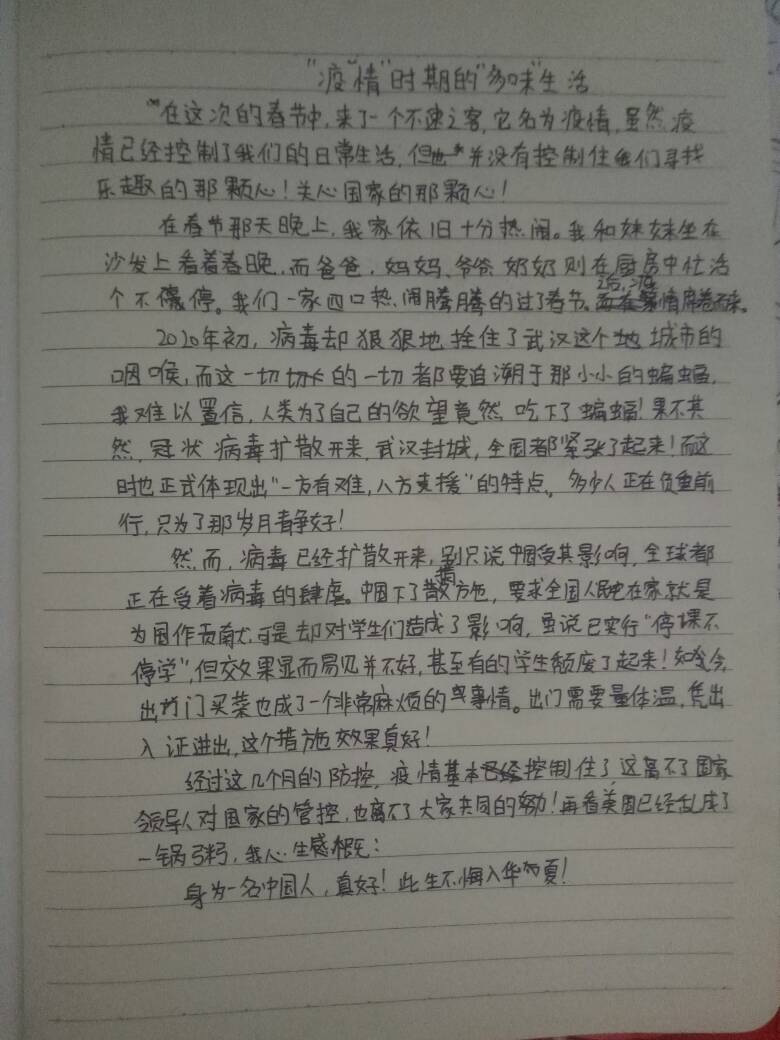 "疫"情"时期的"多味"生活
"在这次的春节中,来了一个不速之客,它名为疫情,虽然疫
情已经控制了我们的日常生活,但并没有控制住我们寻找
乐趣的那颗心!关心国家的那颗心!
在春节那天晚上,我家依旧十分热闹。我和妹妹坐在
沙发上看着春晚,而爸爸、妈妈、爷爷、奶奶则在厨房中忙活
个不停。我们一家四口热闹腾腾的过了春节。之后,疫情席卷而来。
2020年初,病毒却狠狠地拴住了武汉这个城市的
咽喉,而这一切的一切都要追溯于那小小的蝙蝠,
我难以置信,人类为了自己的欲望竟然吃下了蝙蝠!果不其
然,冠状病毒扩散开来,武汉封城,全国都紧张了起来!而这
时也正式体现出"一方有难,八方支援"的特点。多少人正在负重前
行,只为了那岁月静好!
然而,病毒已经扩散开来,别只说中国受其影响,全球都
正在受着病毒的肆虐。中国下了措施,要求全国人民在家就是
为国作贡献,可是却对学生们造成了影响,虽说已实行"停课不
停学",但效果显而易见并不好,甚至有的学生颓废了起来!如今,
出门买菜也成了一个非常麻烦的事情。出门需要量体温,凭出
入证进出,这个措施效果真好!
经过这几个月的防控,疫情基本控制住了,这离不了国家
领导人对国家的管控,也离不了大家共同的努力!再看美国已经乱成了
一锅粥,我心生感概:
身为一名中国人,真好!此生不悔入华夏!